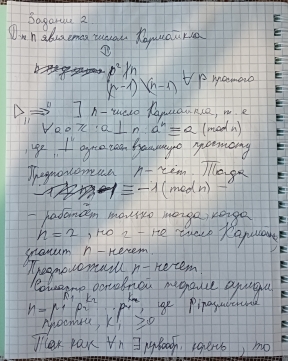 Задание 2
① n является числом Кармайкла
⇕
p² ∤ n
(p-1) \ (n-1) ∀ p простого
▷ "⇒" ] n - число Кармайкла, т.е
∀ a ∈ ℤ: a ⊥ n aⁿ ≡ a (mod n)
где "⊥" означает взаимную простоту
Предположим n - чет. Тогда
≡ -1 (mod n) -
- работает только тогда, когда
n = 2, но 2 - не число Кармайкла,
значит n - нечет.
Предположим n - нечет.
Согласно основной теореме арифм.
n = p₁^{k₁} p₂^{k₂} ... где p_i различные
простые, k_i ≥ 0
Так как ∀ n ∃ первообр. корень, то